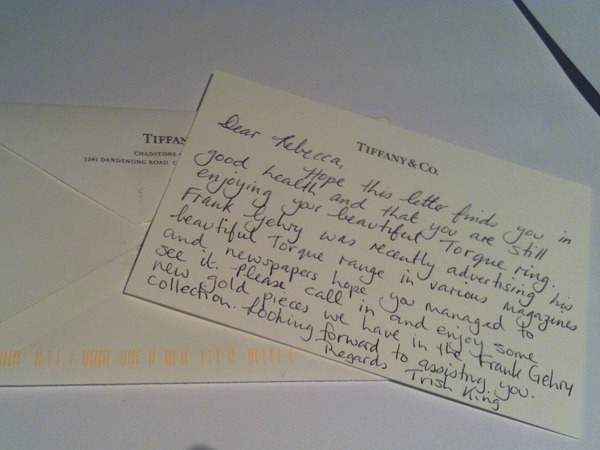 TIFFAN
CHADSTONE
1341 DANDENONG ROAD
TIFFANY & CO.
Dear Rebecca,
Hope this letter finds you in
good health and that you are still
enjoying your beautiful Torque ring.
Frank Gehry was recently advertising his
beautiful Torque range in various magazines
and, newspapers hope you managed to
see it. Please call in and enjoy some
new gold pieces we have in the Frank Gehry
collection. Looking forward to assisting you.
Regards
Trish King